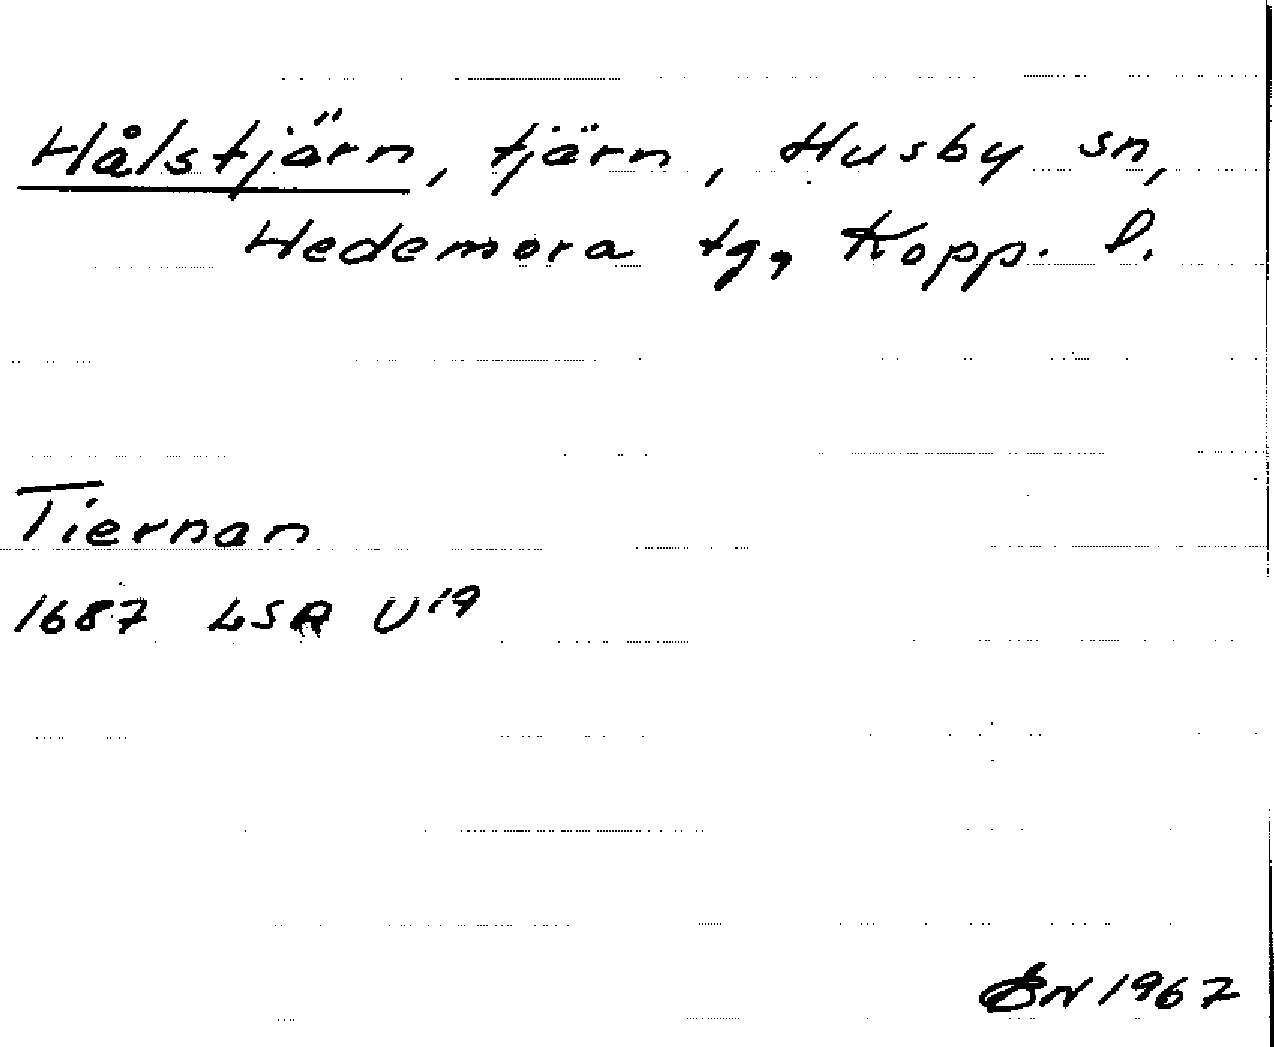 Hålstjärn, tjärn, Husby sn,
Hedemora tg, Kopp. l.
Tiernan
1687 LSR U19
1967